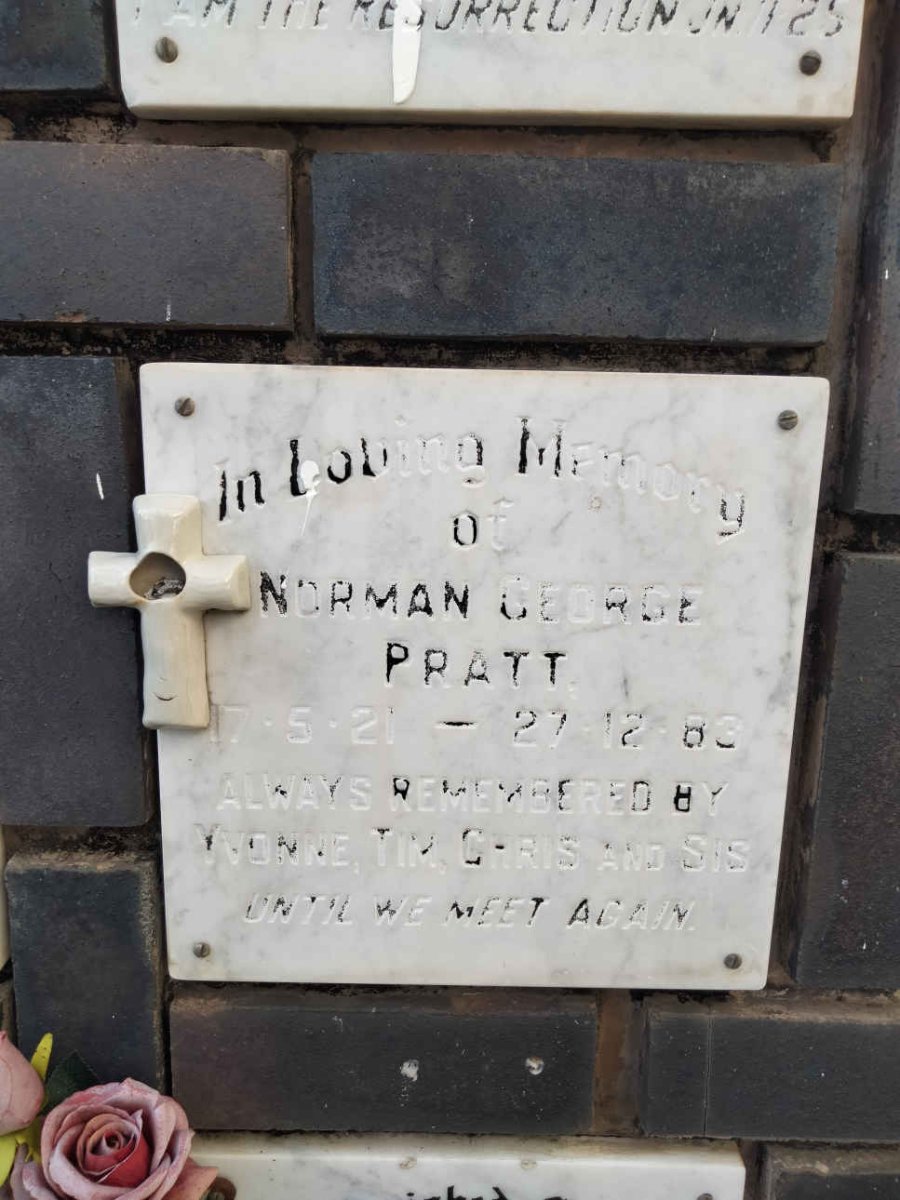 I AM THE RESURRECTION JN.11·25
In Loving Memory
of
NORMAN GEORGE
PRATT.
17·5·21 — 27·12·83
ALWAYS REMEMBERED BY
YVONNE, TIM, CHRIS AND SIS
UNTIL WE MEET AGAIN.